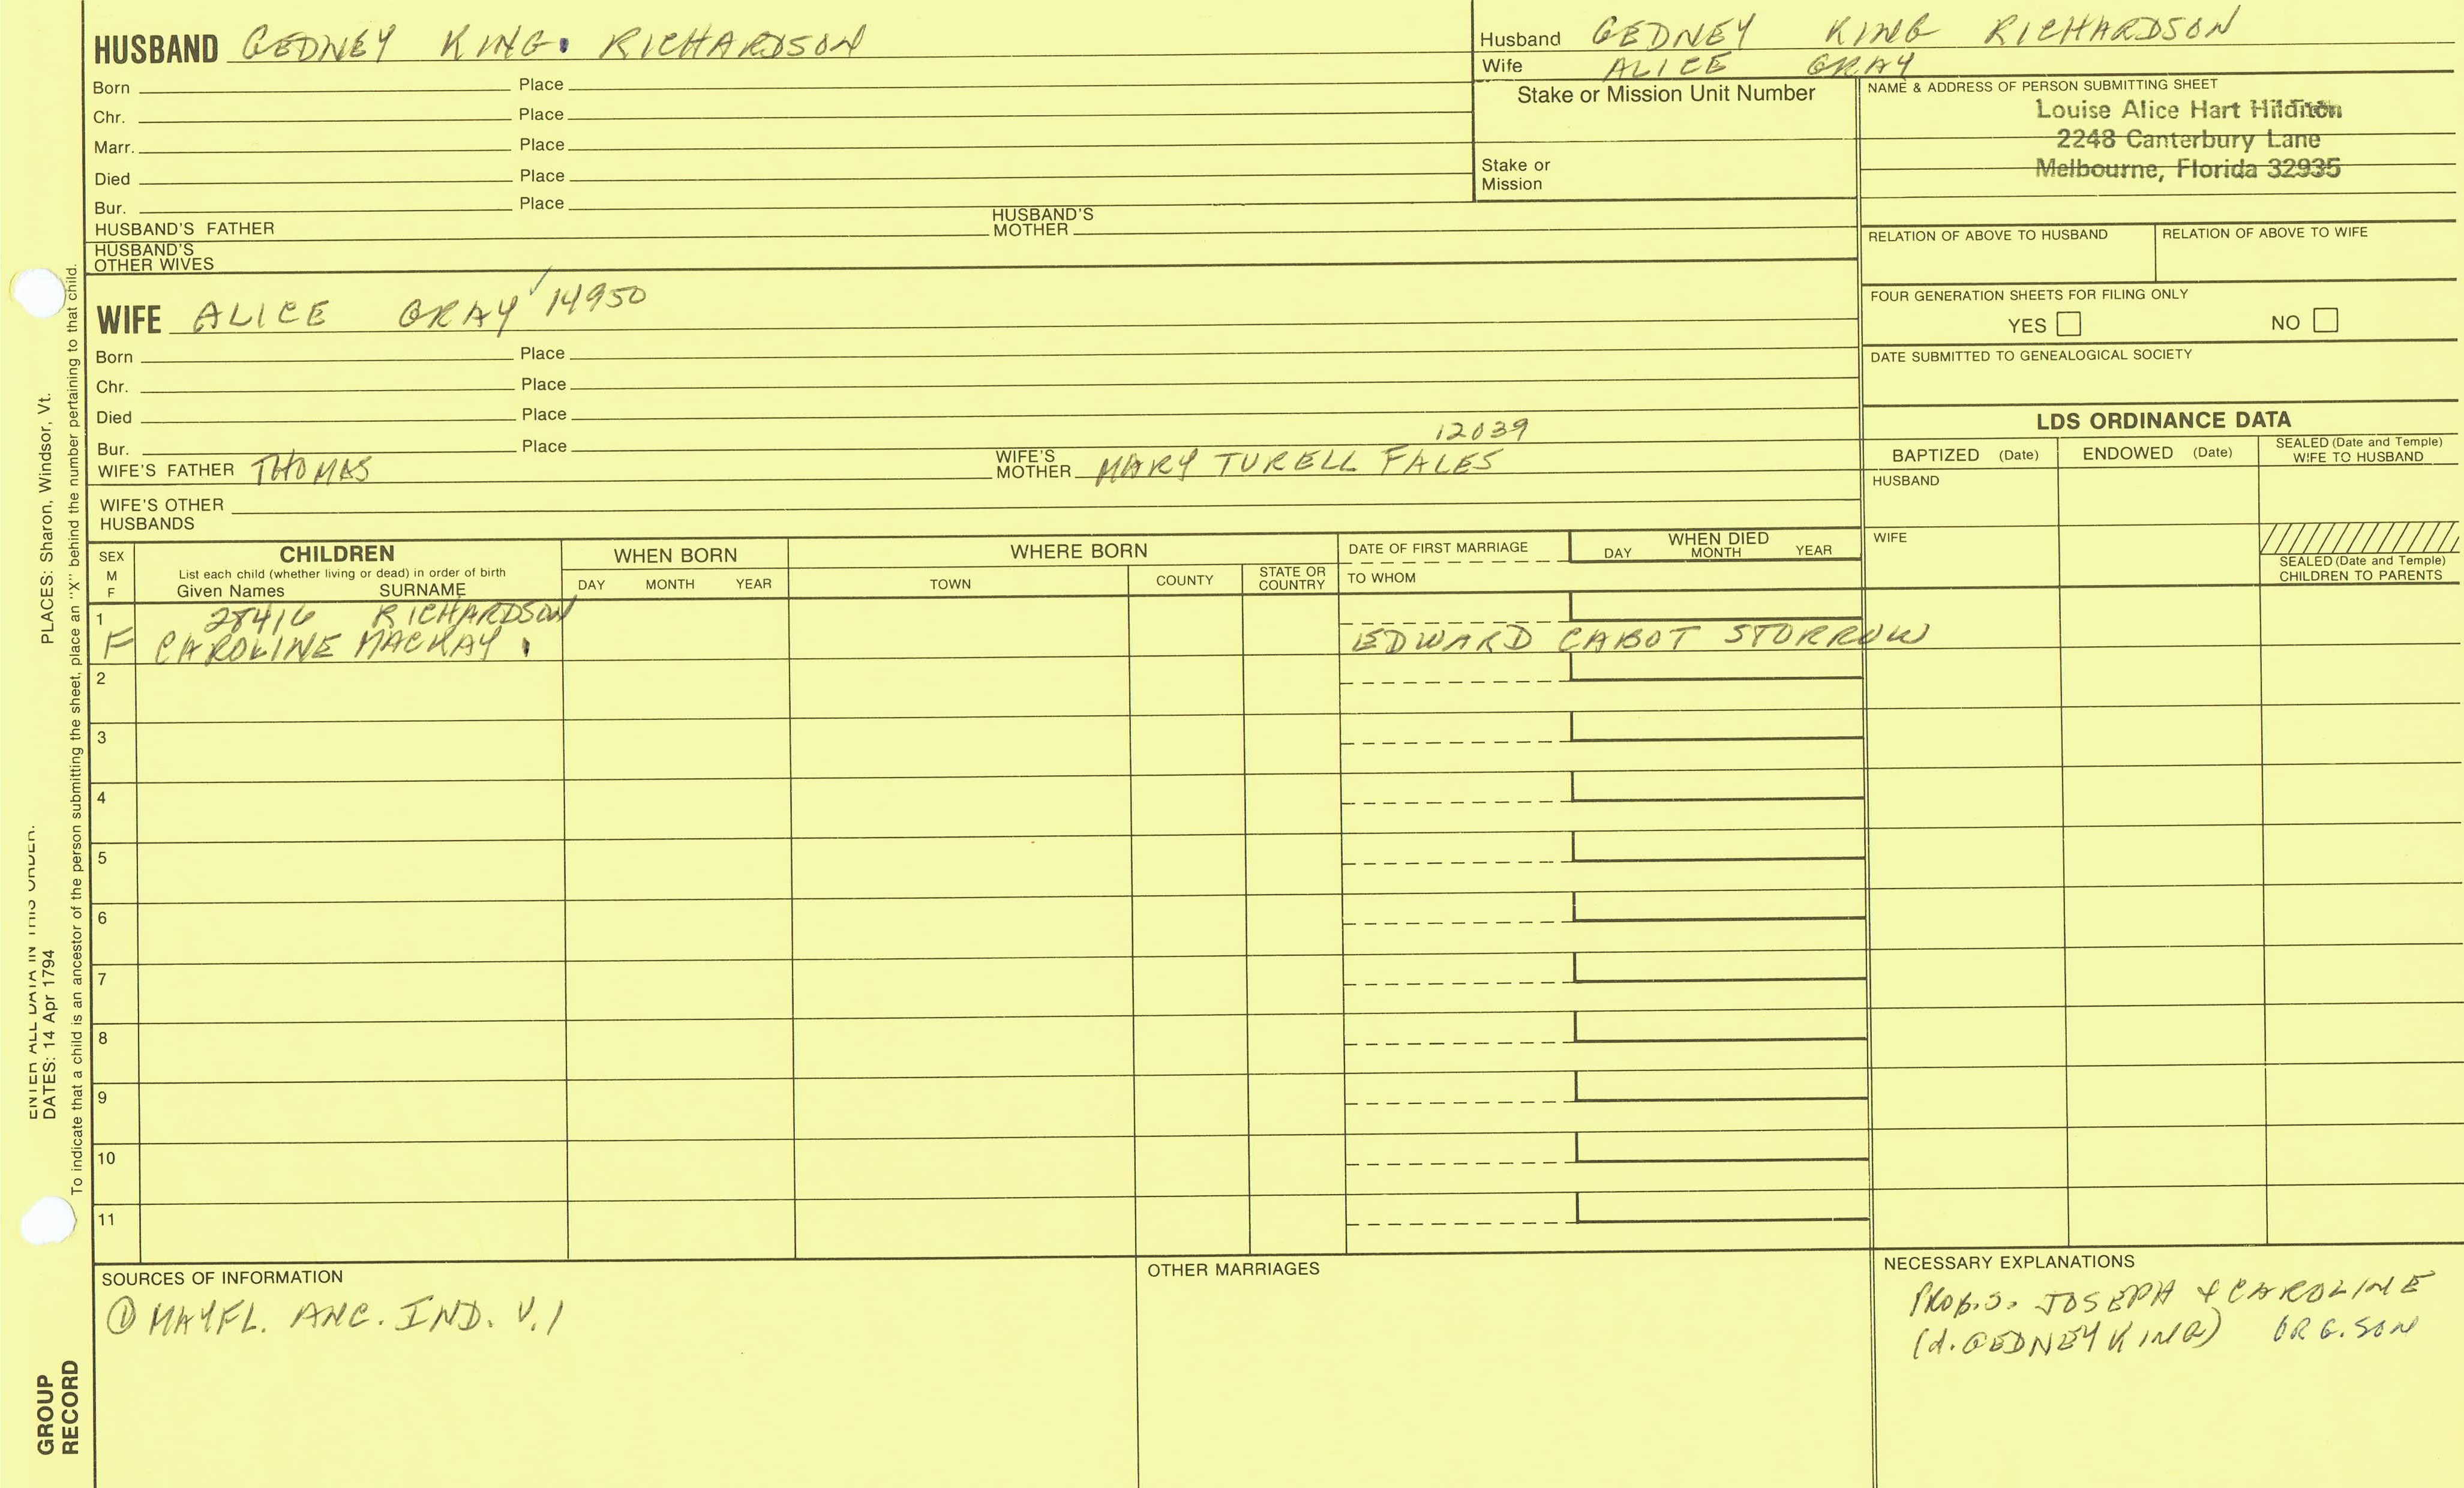 HUSBAND GEDNEY KING RICHARDSON
Born Place
Chr. Place
Marr. Place
Died Place
Bur. Place
HUSBAND'S FATHER HUSBAND'S MOTHER
HUSBAND'S OTHER WIVES
Husband GEDNEY KING RICHARDSON
Wife ALICE GRAY
Stake or Mission Unit Number
Stake or Mission
NAME & ADDRESS OF PERSON SUBMITTING SHEET
Louise Alice Hart
2248 Canterbury Lane
Melbourne, Florida 32935
RELATION OF ABOVE TO HUSBAND RELATION OF ABOVE TO WIFE
FOUR GENERATION SHEETS FOR FILING ONLY
YES NO
DATE SUBMITTED TO GENEALOGICAL SOCIETY
WIFE ALICE GRAY 14950
Born Place
Chr. Place
Died Place
Bur. Place
12039
WIFE'S FATHER THOMAS WIFE'S MOTHER MARY TURELL FALES
WIFE'S OTHER HUSBANDS
LDS ORDINANCE DATA
BAPTIZED (Date) ENDOWED (Date) SEALED (Date and Temple) WIFE TO HUSBAND
HUSBAND
WIFE
SEALED (Date and Temple) CHILDREN TO PARENTS
SEX M F
CHILDREN
List each child (whether living or dead) in order of birth
Given Names SURNAME
WHEN BORN
DAY MONTH YEAR
WHERE BORN
TOWN COUNTY STATE OR COUNTRY
DATE OF FIRST MARRIAGE
TO WHOM
WHEN DIED
DAY MONTH YEAR
1 28416 RICHARDSON
F CAROLINE MACKAY EDWARD CABOT STORROW
2
3
4
5
6
7
8
9
10
11
SOURCES OF INFORMATION
① MAYFL. ANC. IND. V.1
OTHER MARRIAGES
NECESSARY EXPLANATIONS
PROB. S. JOSEPH & CAROLINE
(d. GEDNEY KING) SON
ENTER ALL DATA IN THIS ORDER.
DATES: 14 Apr 1794 PLACES: Sharon, Windsor, Vt.
To indicate that a child is an ancestor of the person submitting the sheet, place an "X" behind the number pertaining to that child.
GROUP
RECORD